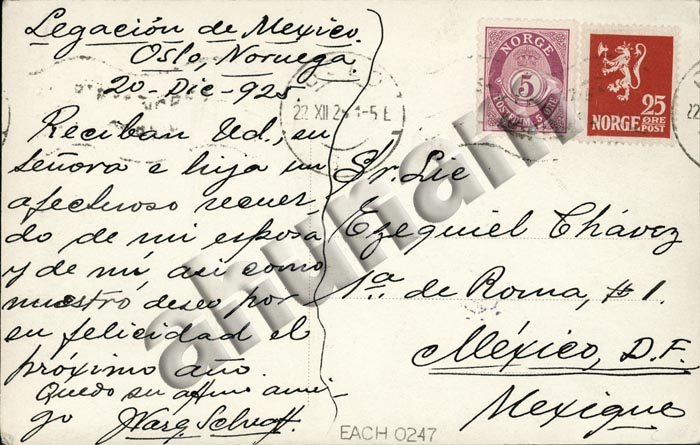 Legación de Mexico.
Oslo, Noruega.
20-Dic-925.
Reciban Ud, su
señora e hija un
afectuoso recuer-
do de mi esposa
y de mí, así como
nuestro deseo por
su felicidad el
próximo año.
Quedo su affmo ami-
go
NORGE
5
POSTFRIM. 5 ØRE
25
NORGE ØRE
POST
22 XII 25
Sr. Lic
Ezequiel Chávez
1ª de Roma, # 1.
México, D.F.
Mexique
EACH 0247
ahunam